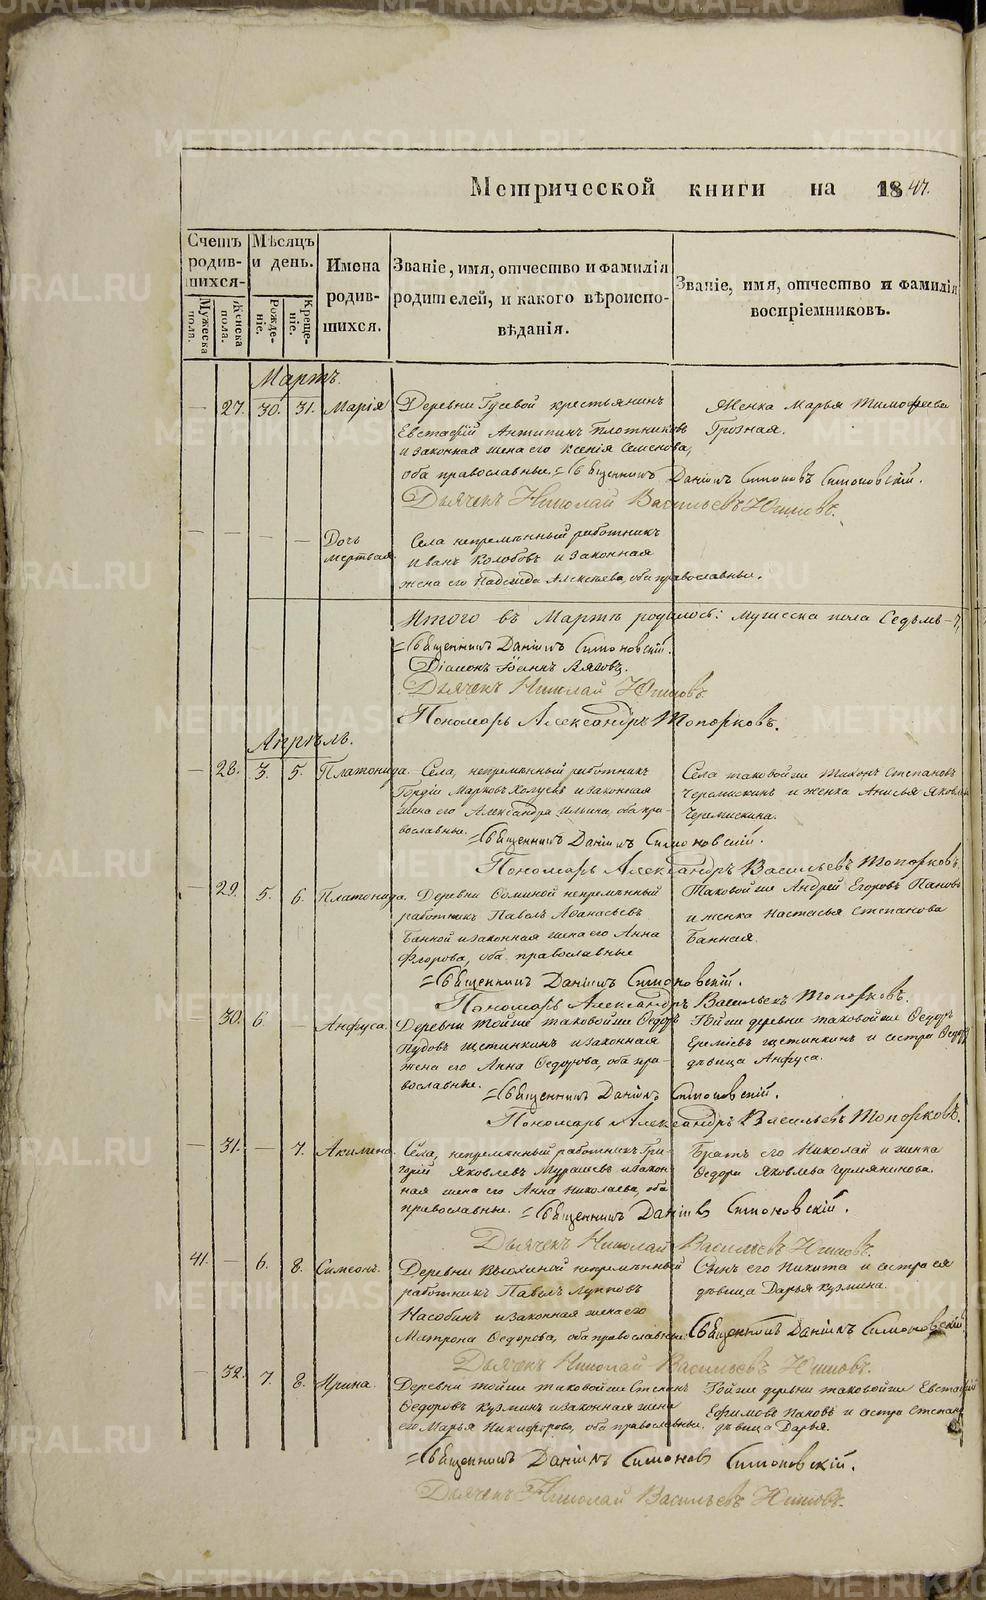 METRIKI.GASO-URAL.RU
Метрической книги на 1847.
Счетъ родив-шихся-
Мѣсяцъ и день.
Имена родив-шихся.
Званіе, имя, отчество и фамилія родителей, и какого вѣроиспо-вѣданія.
Званіе, имя, отчество и фамилія воспріемниковъ.
Мужеска пола.
Женска пола.
Рожде-ніе.
Креще-ніе.
Мартъ.
— 27. 30. 31. Марія Деревни Гусевой крестьянинъ
Евстафій Антипинъ Плотниковъ
и законная жена его Ксенія Семенова,
оба православные.
Женка Марья Тимофеева
Грозная.
Священникъ Даніилъ Симоновъ Симоновскій.
Дьячекъ Николай Васильевъ Юшковъ.
— — — — Дочь мертвая
Села непремѣнный работникъ
Иванъ Колобовъ и законная
жена его Надежда Алексѣева, оба православные.
Итого въ Мартѣ родилось: мужеска пола Седьмь – 7,
Священникъ Даніилъ Симоновскій.
Діаконъ Іоаннъ
Дьячекъ Николай Юшковъ
Пономарь Александръ Топорковъ.
Апрѣль.
— 28. 3. 5. Платонида. Села, непремѣнный работникъ
Гордій Марковъ и законная
жена его Александра Ильина, оба пра-
вославные.
Села таковой же Тихонъ Степановъ
Черемискинъ и женка Анисья
Черемискина.
Священникъ Даніилъ Симоновскій.
Пономарь Александръ Васильевъ Топорковъ.
— 29. 5. 6. Платонида. Деревни непремѣнный
работникъ Павелъ Аѳанасьевъ
Банной и законная жена его Анна
Флорова, оба православные
Таковой же Андрей Егоровъ Пановъ
и женка Настасья Степанова
Банная.
Священникъ Даніилъ Симоновскій.
Пономарь Александръ Васильевъ Топорковъ.
30. 6. — Анфуса. Деревни тойже таковойже Ѳедоръ
Пудовъ Щетинкинъ и законная
жена его Анна Ѳедорова, оба пра-
вославные.
Тойже деревни таковойже Ѳедоръ
Щетинкинъ и сестра
дѣвица Анфуса.
Священникъ Даніилъ Симоновскій.
Пономарь Александръ Васильевъ Топорковъ.
— 31. — 7. Акилина. Села, непремѣнный работникъ Гри-
горій Яковлевъ Мурашевъ и закон-
ная жена его Анна Николаева, оба
православные.
Братъ его Николай и женка
Ѳедора Яковлева
Священникъ Даніилъ Симоновскій.
Дьячекъ Николай Васильевъ Юшковъ.
41. — 6. 8. Симеонъ. Деревни непремѣнный
работникъ Павелъ
и законная жена его
Матрона Ѳедорова, оба православные.
Сынъ его Никита и сестра ея
дѣвица Дарья Кузмина.
Священникъ Даніилъ Симоновскій.
Дьячекъ Николай Васильевъ Юшковъ.
— 32. 7. 8. Ирина. Деревни тойже таковойже Степанъ
Ѳедоровъ Кузминъ и законная жена
его Марья Никифорова, оба православные.
Тойже деревни таковойже Евстафій
Ефимовъ Пановъ и сестра
дѣвица Дарья.
Священникъ Даніилъ Симоновъ Симоновскій.
Дьячекъ Николай Васильевъ Юшковъ.